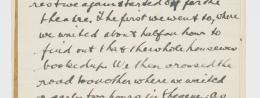 rest we again started off for the
theatre. The first we went to, where
we waited about half an hour to
find out that the whole house was
booked up. We then crossed the
road to another where we waited
nearly two hours in the queue. as